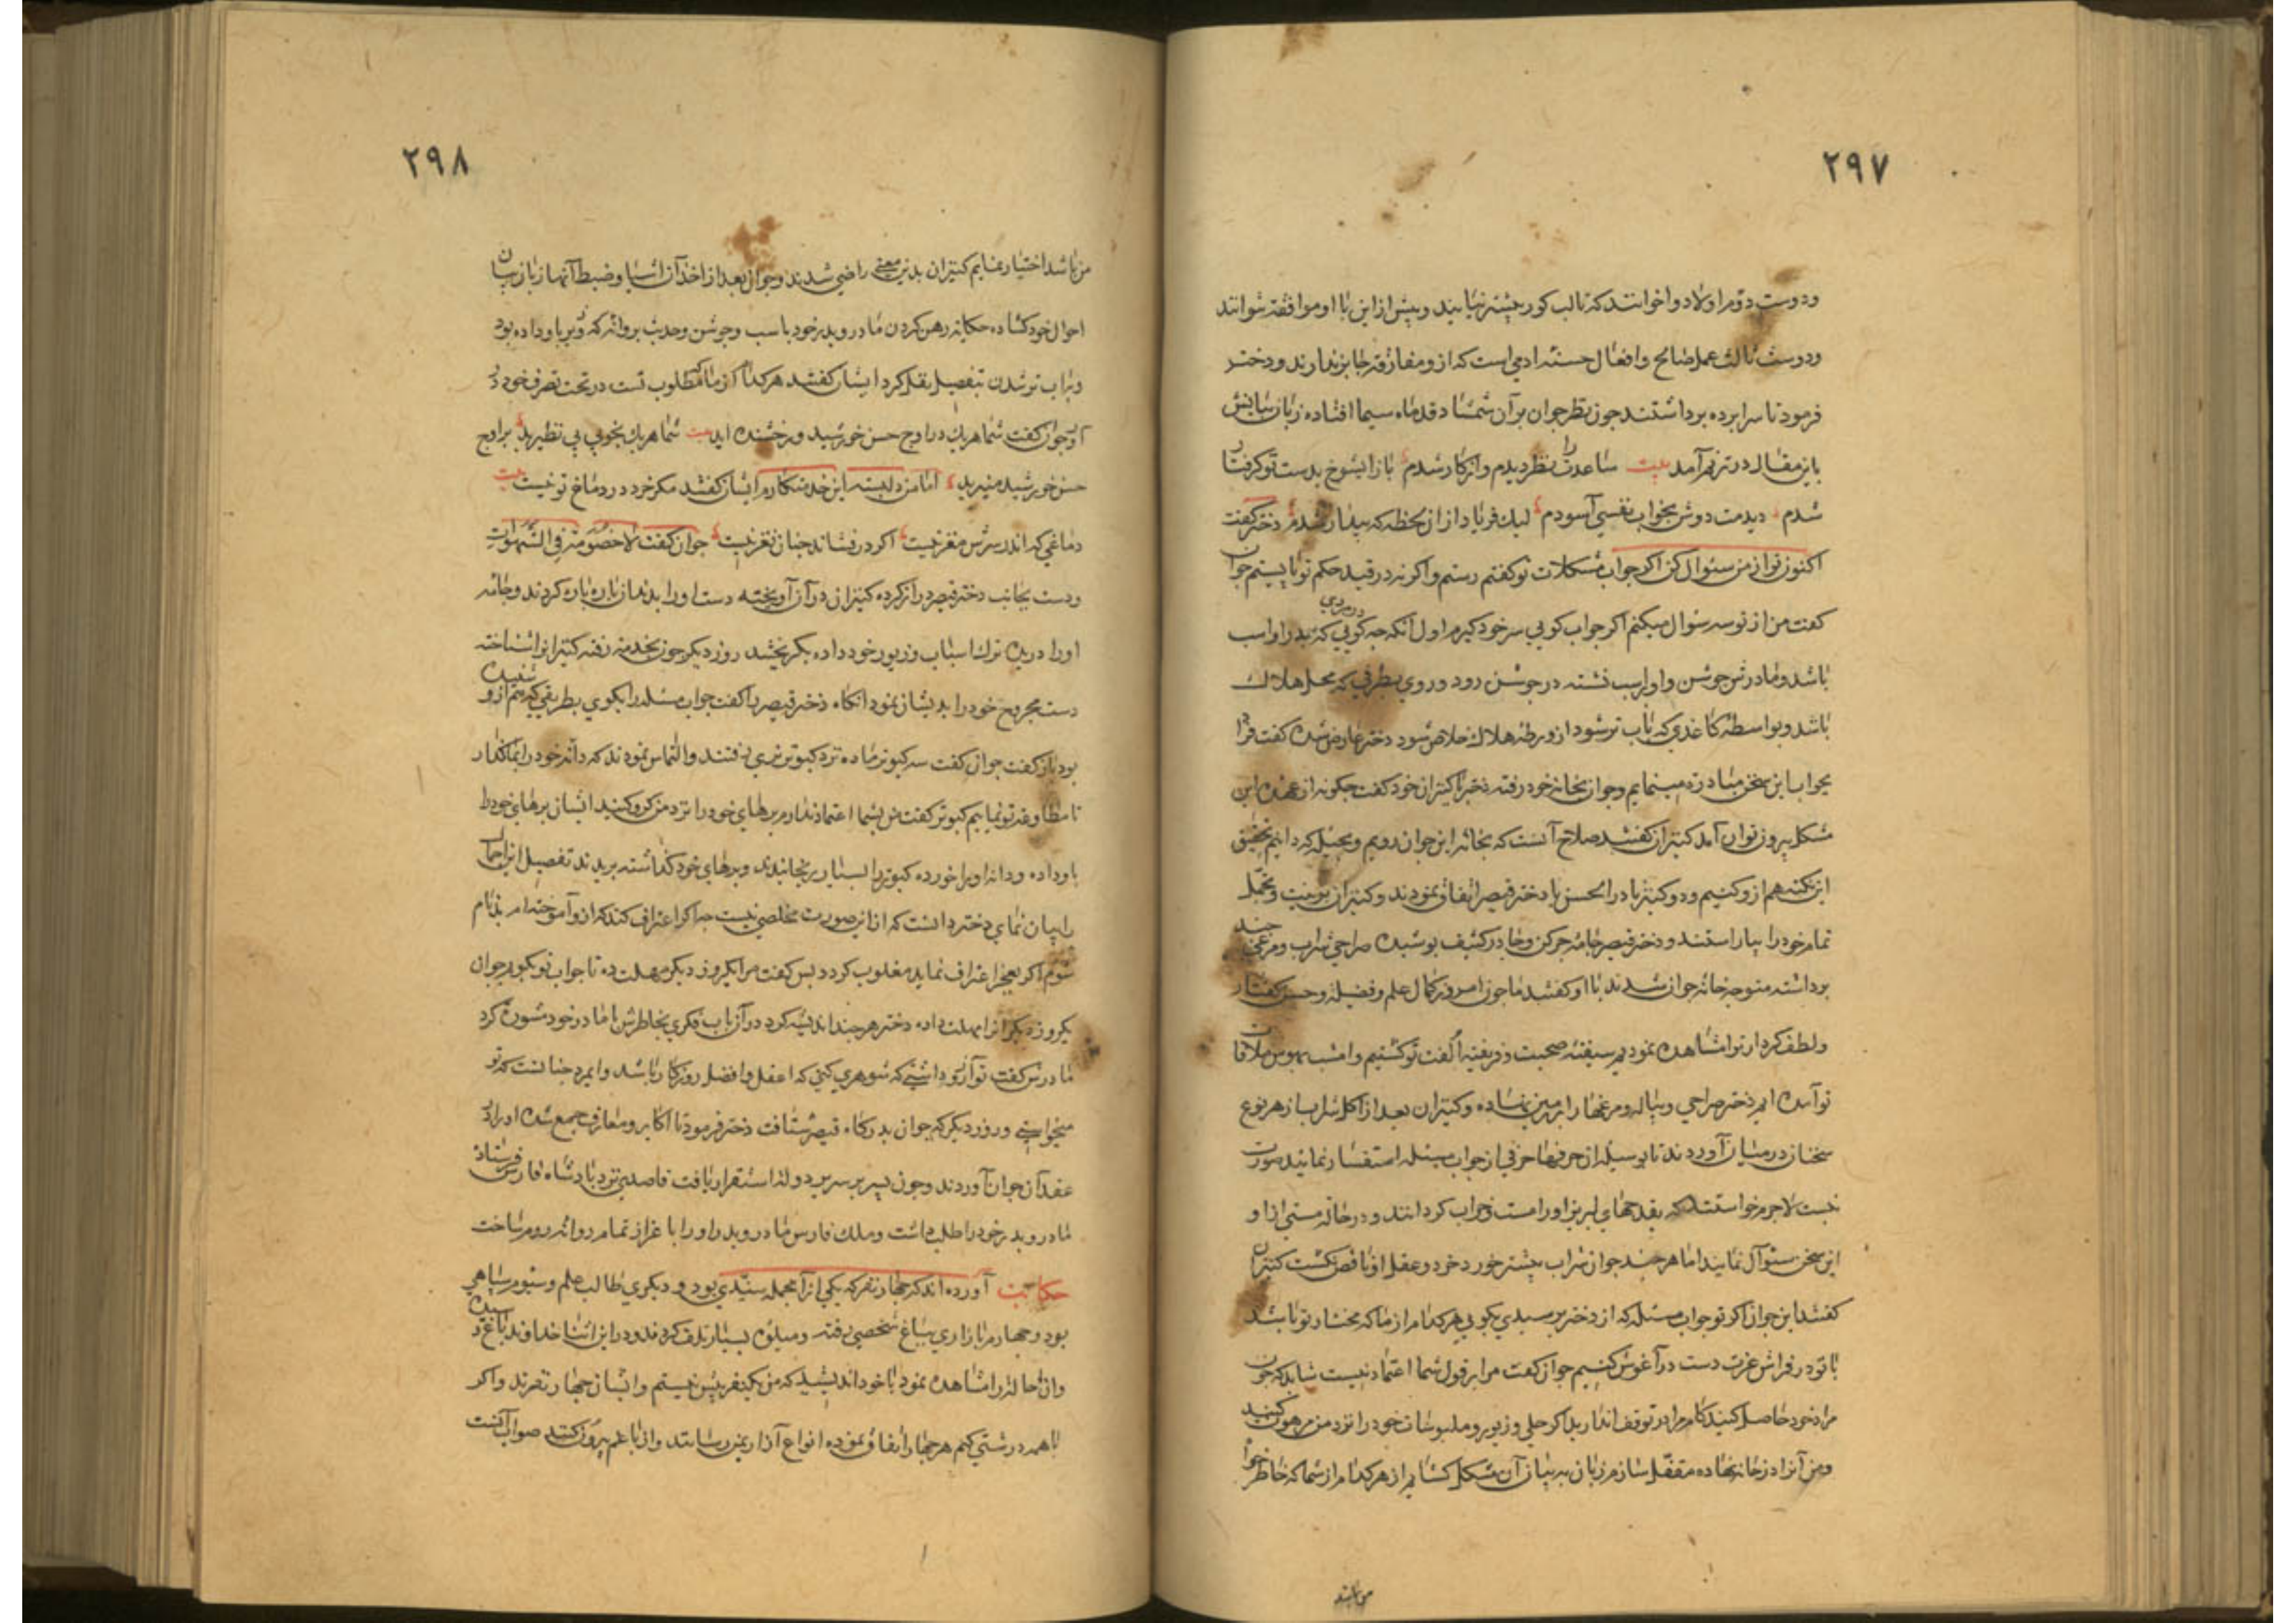 ۲۹۷
ودوست دوم اولاد و اخوانند که تا لب کور بیشتر نیایند وبیش از این با او موافقة نتوانند
ودوست ثالث عمل صالح وافعال حسنه ادمی است که از و مفارقة جایز ندارند ودختر
فرمود تا سرابرده برداشتند جون نظر جوان بر آن شمشاد قد ماه سیما افتاده زبان
باین مقال در ترنم آمد بیت ساعدت را نظر دیدم واز کار شدم بازا یشوخ بدست تو کرفتار
شدم دیدمت دوش بخواب نفسی آسودم لیك فریاد از ان لحظه که بیدار شدم دختر کفت
اکنون تو از من سئوال کن اکر جواب مشکلات تو کفتم رستم واکر نه در قید حکم تو بایستم جوان
کفت من از تو سه سئوال میکنم اکر جواب کویی سر خود کیرم اول آنکه جه کویی در مردی که بدر او اسب
باشد ومادرش جوشن واو بر اسب نشسته در جوشن رود وروی بطرفی که محل هلاك
باشد وبواسطۀ کاغدی که باب تر شود از ورطۀ هلاك خلاص شود دختر عارض شده کفت فردا
بجواب این سخن مبادرت مینمایم وجوان بخانۀ خود رفته دختر با کنیزان خود کفت جکونه از عهدۀ این
مشکل بیرون توان آمد کنیزان کفتند صلاح آنست که بخانۀ این جوان رویم وبحیله که دانیم تحقیق
این نکته هم از و کنیم ودو کنیز نادر الحسن با دختر قیصر اتفاق نمودند وکنیزان بزینت وتجمل
تمام خود را بیاراستند و دختر قیصر جامۀ جرکن وجادر کثیف بوشیده صراحی شراب ومرغی جند
برداشته متوجه خانۀ جوان شدند با او کفتند ما جون امروز کمال علم وفضل وحسن کفتار
ولطف کردار ترا مشاهده نمودیم شیفتۀ صحبت و فریفتۀ الفت تو کشتیم وامشب بهوس ملاقات
تو آمده ایم دختر صراحی وبیاله ومرغها را بر زمین نهاده وکنیزان بعد از اکل شراب از هر نوع
سخنان در میان آوردند تا بوسیله از حرفها حرفی از جواب مسئله استفسار نمایند صورت
نبست لاجرم خواستند که بقدحهای لبریز اورا مست وخراب کردانند ودر حالة مستی از او
این سخن سئوآل نمایند اما هر جند جوان شراب بیشتر خورد خرد وعقل او ناقص نکشت کنیزان
کفتند این جوان اکر تو جواب مسئله که از دختر برسیدی بکویی هر کدام از ما که مختار تو باشد
با تو در فراش عزت دست در آغوش کنیم جوان کفت مرا بر قول شما اعتماد نیست شاید که جون
مراد خود حاصل کنید کام مرا در توقف اندازید اکر حلی وزیور وملبوسات خود را نزد من مرهون کنید
ومن آنرا در خانه نهاده مقفل سازم زبان به بیان آن مشکل کشایم از هر کدام از شما که خاطر خواه
من باشد
۲۹۸
من باشد اختیار نمایم کنیزان بدین معنی راضی شدند وجوان بعد از اخذ آن اشیا وضبط آنها زبان ببیان
احوال خود کشاده حکایة رهن کردن مادر وبدر خود باسب وجوشن وحدیث بروانه که وزیر باو داده بود
وباب تر شدن بتفصیل نقل کرد ایشان کفتند هر کدام از ما که مطلوب تست در تحت تصرف خود
آور جوان کفت شما هریك در اوج حسن خورشید ورخشنده اید بیت شما هریك بخوبی بی نظیرید بر اوج
حسن خورشید منیرید اما من دلبستۀ این خدمتکارم ایشان کفتند مکر خرد در دماغ تو نیست بیت
دماغی که اندر سرش مغز نیست اکر در فشاند جنان نغز نیست جوان کفت لا خصومة فی الشهوات
ودست بجانب دختر قیصر دراز کرده کنیزان در آن آویخته دست اورا بدندان باره باره کردند وجامۀ
اورا دریده ترك اسباب وزیور خود داده بکریختند روز دیکر جون بخدمة رفته کنیزانرا شناخته
دست مجروح خود را بدیشان نمود انکاه دختر قیصر را کفت جواب مسئله را بکوی بطریقی که هم از و شنیده
بود باز کفت جوان کفت سه کبوتر ماده نزد کبوتر نری رفتند والتماس نمودند که دانه خود را بما کذار
تا مطاوعة تو نماییم کبوتر کفت من بشما اعتماد ندارم برهای خود را نزد من کرو کنید ایشان برهای خود را
باو داده ودانه اورا خورده کبوتر را بسیار برنجانیدند وبرهای خود کذاشته بریدند تفصیل این اجمال
را بیان نمای دختر دانست که از این صورت مخلصی نیست جه اکر اعتراف کند که از و آموخته ام بدنام
شوم واکر بعجز اعتراف نماید مغلوب کردد بس کفت مرا یکروز دیکر مهلت ده تا جواب تو بکویم جوان
یکروز دیکر اورا مهلت داده دختر هر جند اندیشه کرد در آن باب فکری بخاطرش با مادر خود مشورة کرد
مادرش کفت تو آرزو داشتی که شوهری کنی که اعقل وافضل روزکار باشد واین مرد جنانست که تو
میخواستی وروز دیکر که جوان بدرکاه قیصر شتافت دختر فرمود تا اکابر ومعارف جمع شده اورا در
عقد آن جوان آوردند وجون بسر بر سریر دولة استقرار یافت قاصدی نزد بادشاه فارس فرستاد
مادر وبدر خود را طلب داشت وملك فارس مادر وبدر اورا با عزاز تمام روانۀ روم ساخت
حکایت آورده اند که جهار نفر که یکی از آنجمله سیدی بود و دیکری طالب علم وسیوم سباهی
بود وجهارم بازاری بباغ شخصی رفته ومیوۀ بسیار تلف کردند ودر این اثنا خداوند باغ رسیده
وان حالة را مشاهده نمود با خود اندیشید که من یکنفر بیش نیستم وایشان جهار نفرند واکر
با همه درشتی کنم هر جهار اتفاق نموده انواع آزار بمن رسانند واز باغم بیرون کنند صواب آنست